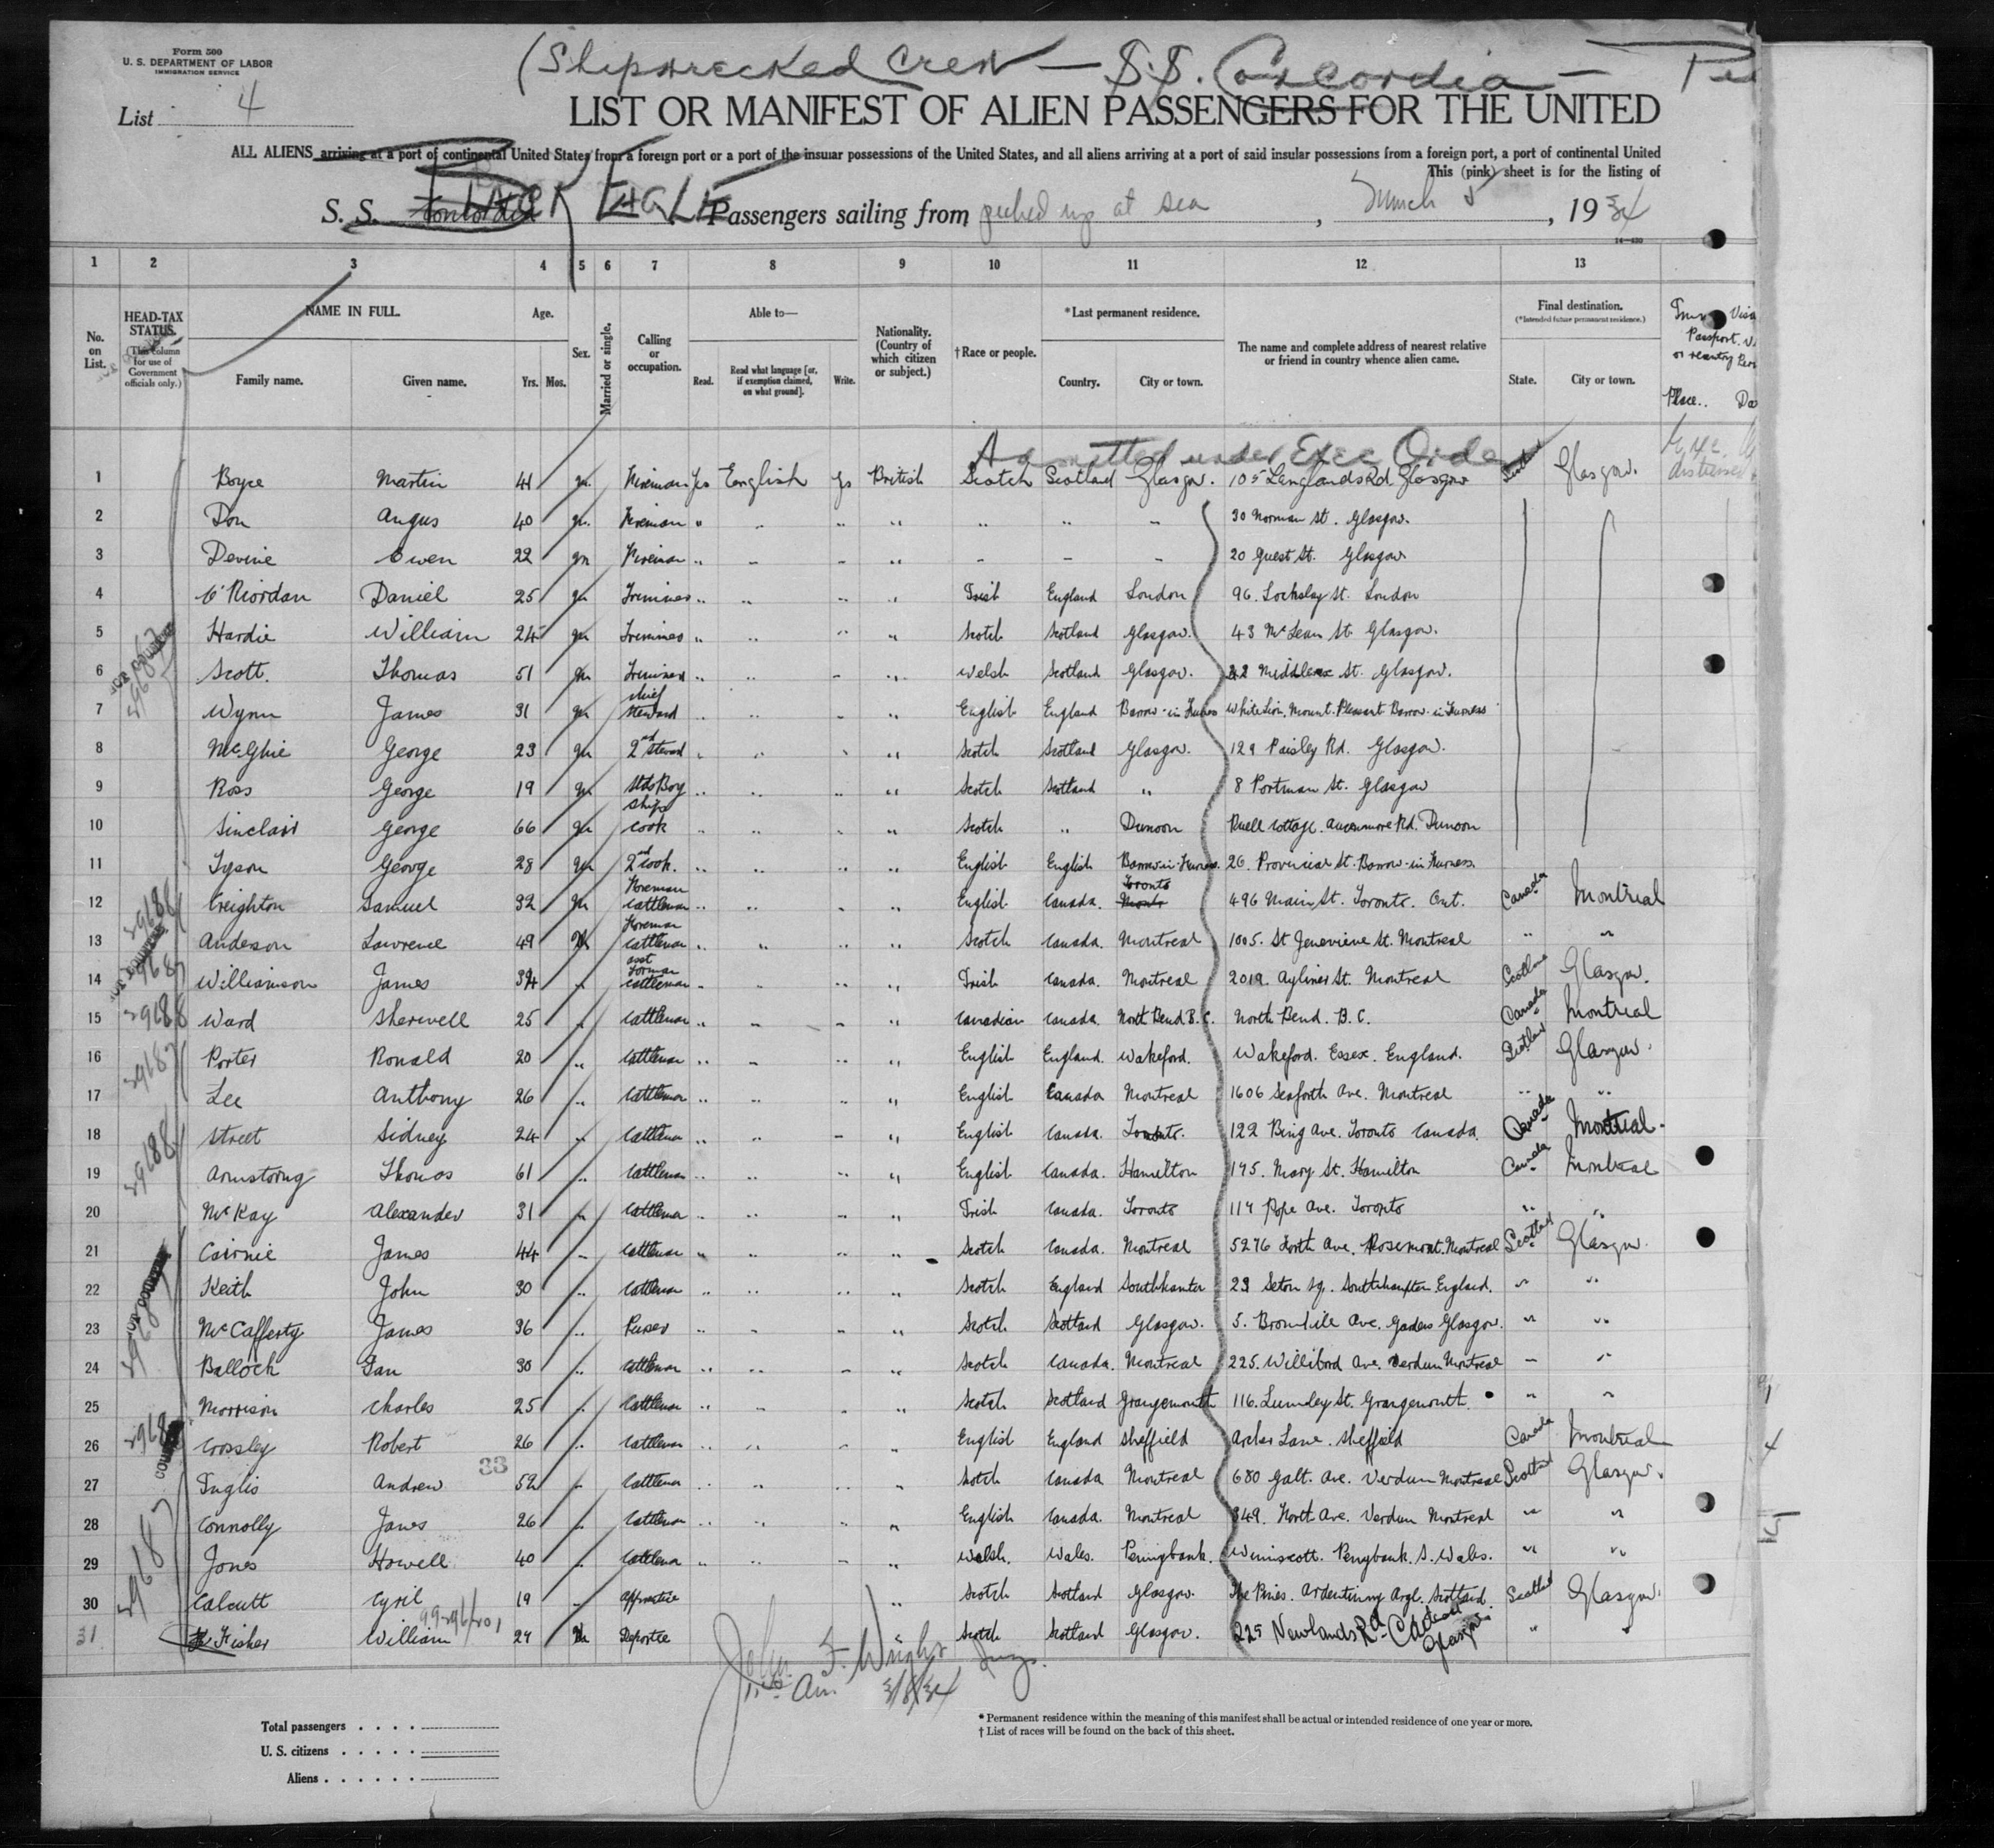 Form 500
U. S. DEPARTMENT OF LABOR
IMMIGRATION SERVICE
(Shipwrecked Crew — S.S. Concordia —
List 4
LIST OR MANIFEST OF ALIEN PASSENGERS FOR THE UNITED
ALL ALIENS arriving at a port of continental United States from a foreign port or a port of the insular possessions of the United States, and all aliens arriving at a port of said insular possessions from a foreign port, a port of continental United
This (pink) sheet is for the listing of
S. S. Concordia Black Eagle Passengers sailing from picked up at sea, March 5, 1934
14—430
1 2 3 4 5 6 7 8 9 10 11 12 13
No. on List.
HEAD-TAX STATUS. (This column for use of Government officials only.)
NAME IN FULL. Family name. Given name.
Age. Yrs. Mos.
Sex.
Married or single.
Calling or occupation.
Able to— Read. Read what language [or, if exemption claimed, on what ground]. Write.
Nationality. (Country of which citizen or subject.)
† Race or people.
* Last permanent residence. Country. City or town.
The name and complete address of nearest relative or friend in country whence alien came.
Final destination. (*Intended future permanent residence.) State. City or town.
Passport
Place..
Admitted under Exec Order
1 Boyce Martin 41 m Fireman Yes English Yes British Scotch Scotland Glasgow. 105 Langlands Rd. Glasgow Scotland Glasgow.
2 Don Angus 40 m. Fireman " .. .. " .. " - 30 Norman St. Glasgow.
3 Devine Owen 22 m Fireman .. - - " - - - 20 Guest St. Glasgow
4 O'Riordan Daniel 25 m Trimmer .. .. .. " Irish England London 96. Locksley St. London
5 Hardie William 24 m Trimmer .. .. .. " Scotch Scotland Glasgow. 43 McLean St. Glasgow.
6 Scott. Thomas 51 m Trimmer .. .. - " Welsh Scotland Glasgow. 22 Middlesex St. Glasgow.
7 Wynn James 31 m chief steward .. .. .. " English England Barrow-in-Furness White Lion, Mount. Pleasant Barrow-in-Furness
8 McGhie George 23 m 2nd steward .. .. .. " Scotch Scotland Glasgow. 129 Paisley Rd. Glasgow.
9 Ross George 19 m Boy .. .. .. " Scotch Scotland " 8 Portman St. Glasgow
10 Sinclair George 66 m ships cook .. .. .. " Scotch " Dunoon Ruell Cottage. Rd. Dunoon
11 Tyson George 28 m 2nd cook. .. .. .. " English English Barrow-in-Furness. 26. Provincial St. Barrow-in-Furness.
12 Creighton Samuel 32 m Foreman cattleman .. .. .. " English Canada. Toronto 496 Main St. Toronto. Ont. Canada Montreal
13 Anderson Lawrence 49 M Foreman cattleman .. .. .. " Scotch Canada. Montreal 1005. St Genevieve St. Montreal .. "
14 Williamson James 34 .. asst Forman cattleman .. .. .. " Irish Canada. Montreal 2019. Aylmer St. Montreal Scotland Glasgow.
15 Ward Sherwell 25 .. Cattleman .. - - " Canadian Canada. North Bend B.C. North Bend. B.C. Canada Montreal
16 Porter Ronald 20 .. Cattleman .. - .. " English England. Wakeford. Wakeford. Essex. England. Scotland Glasgow.
17 Lee Anthony 26 .. Cattleman .. .. .. " English Canada Montreal 1606 Seaforth Ave. Montreal .. ..
18 Street Sidney 24 .. Cattleman .. .. - " English Canada. Toronto. 122 Bing Ave. Toronto Canada. Canada Montreal.
19 Armstrong Thomas 61 .. Cattleman .. .. .. " English Canada. Hamilton 195. Mary St. Hamilton Canada Montreal
20 McKay Alexander 31 .. Cattleman .. .. .. " Irish Canada. Toronto 114 Pope Ave. Toronto .. ..
21 Cairnie James 44 - Cattleman .. .. .. " Scotch Canada. Montreal 5276 Ave. Rosemont. Montreal Scotland Glasgow.
22 Keith John 30 .. Cattleman .. .. .. " Scotch England Southampton 23 Seton Sq. Southampton England. " "
23 McCafferty James 36 .. .. - .. " Scotch Scotland Glasgow. 5. Ave. Glasgow. " "
24 Balloch Ian 30 .. Cattleman .. .. .. " Scotch Canada. Montreal 225. Willibord Ave. Verdun Montreal - "
25 Morrison Charles 25 .. Cattleman .. .. .. " Scotch Scotland Grangemouth 116. Lumley St. Grangemouth. " "
26 Crossley Robert 26 .. Cattleman .. .. .. " English England Sheffield Archer Lane. Sheffield Canada Montreal
27 Inglis Andrew 52 - Cattleman .. .. .. " Scotch Canada Montreal 680 Galt. Ave. Verdun Montreal Scotland Glasgow.
28 Connolly James 26 .. Cattleman .. .. .. " English Canada. Montreal 349. Ave. Verdun Montreal " "
29 Jones Howell 40 .. Cattleman .. .. - " Welsh. Wales. Penybank. Penybank. S. Wales. " "
30 Calcutt Cyril 19 - Apprentice Scotch Scotland Glasgow. The Pines. Ardentinny Argl. Scotland. Scotland Glasgow.
31 Fisher William 24 m Deportee " Scotch Scotland Glasgow. 225 Newlands Rd Cathcart Glasgow " "
33
John F. Wright
3/8/34
Total passengers . . . .
U. S. citizens . . . . .
Aliens . . . . . .
* Permanent residence within the meaning of this manifest shall be actual or intended residence of one year or more.
† List of races will be found on the back of this sheet.